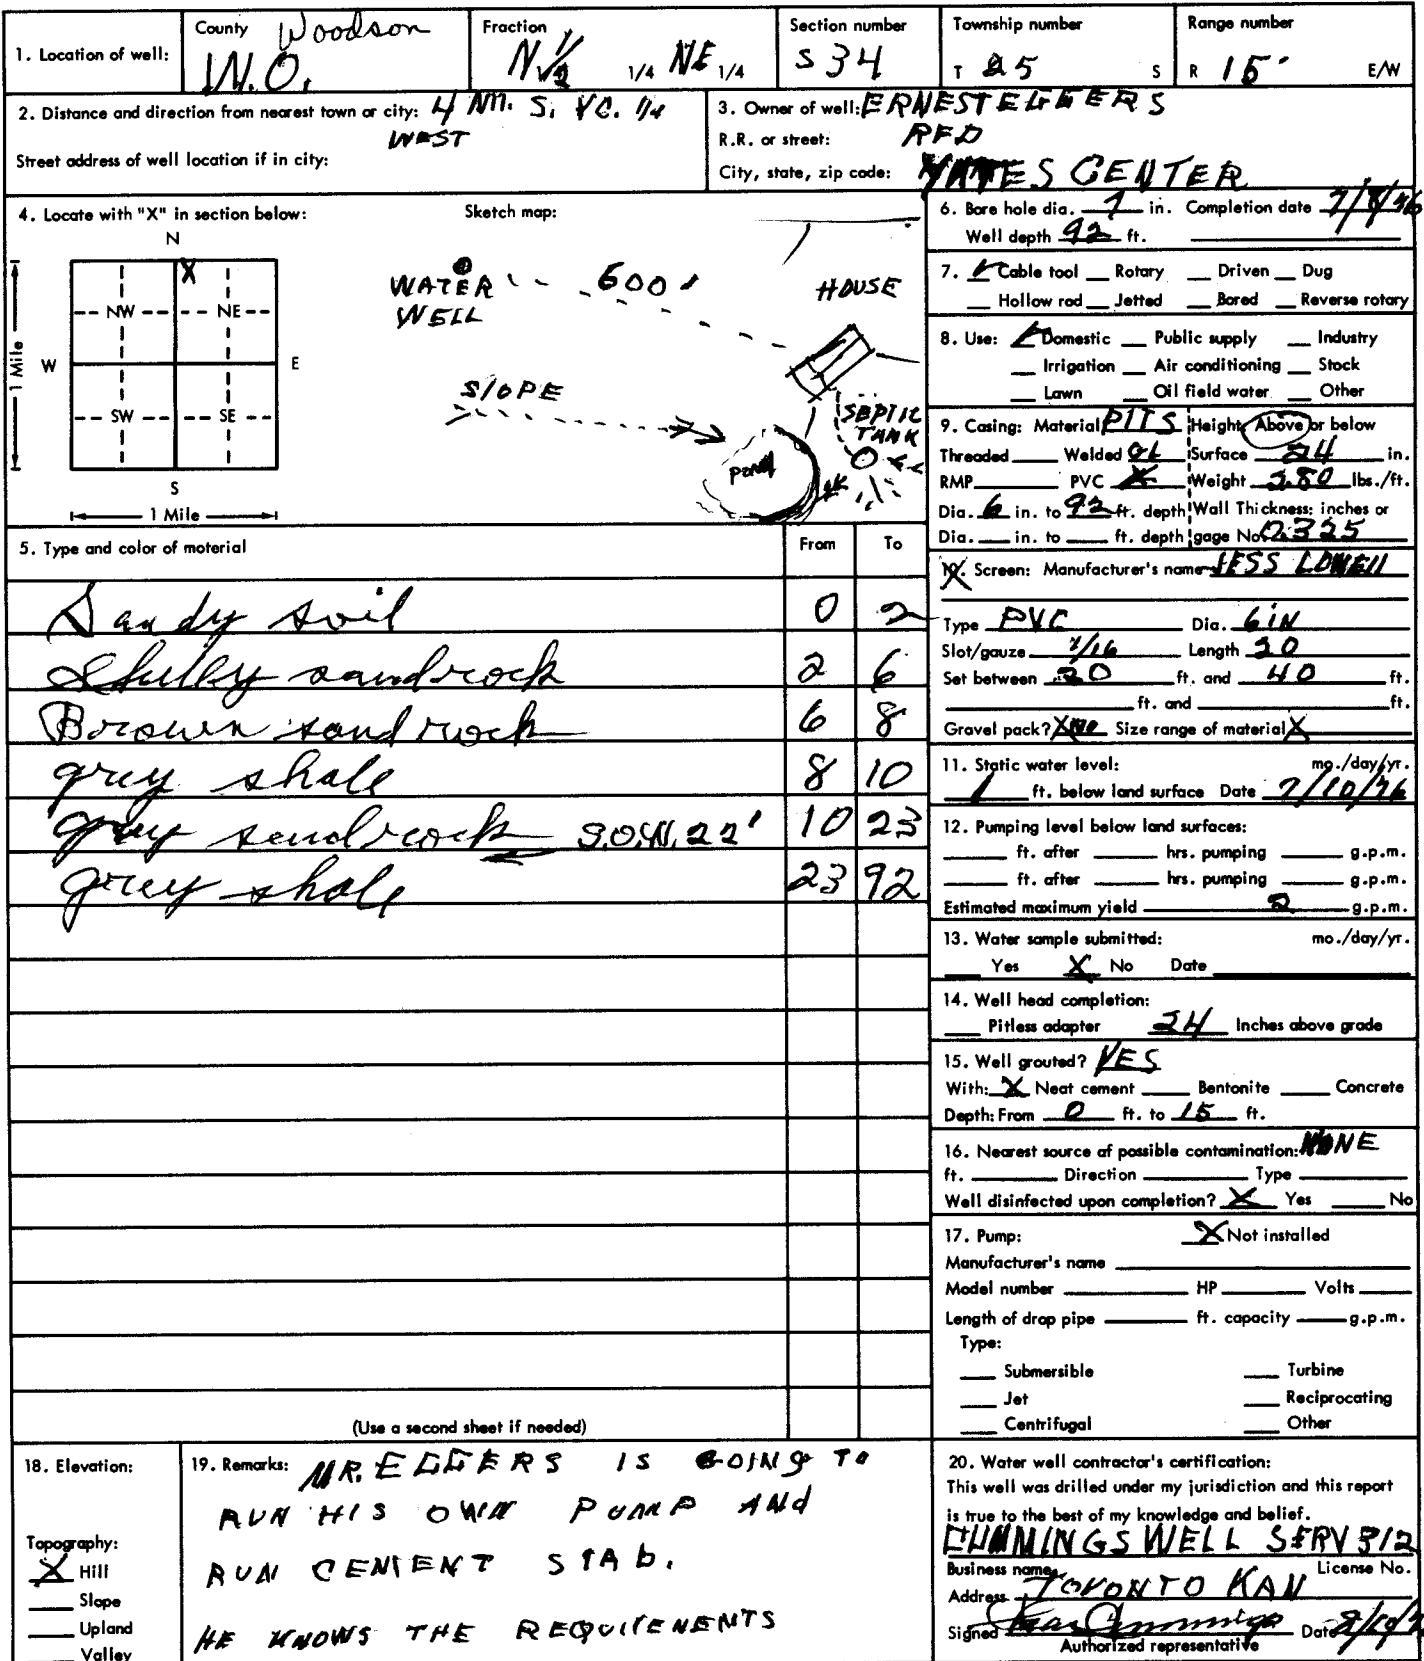 1. Location of well: County Woodson W.O. Fraction N 1/2 1/4 NE 1/4 Section number S 34 Township number T 25 S Range number R 15 E/W
2. Distance and direction from nearest town or city: 4 MI. S. YC. 1/4
WEST
Street address of well location if in city:
3. Owner of well: ERNEST EGGERS
R.R. or street: RFD
City, state, zip code: YATES CENTER
4. Locate with "X" in section below:
N
X
NW NE
W E
SW SE
S
1 Mile
1 Mile
Sketch map:
WATER WELL
600'
HOUSE
SLOPE
SEPTIC TANK
POND
5. Type and color of material From To
Sandy soil 0 2
Shelby sandrock 2 6
Brown sand rock 6 8
grey shale 8 10
grey sandrock S.O.W. 22' 10 23
grey shale 23 92
(Use a second sheet if needed)
6. Bore hole dia. 7 in. Completion date 7/8/76
Well depth 92 ft.
7. ✓ Cable tool Rotary Driven Dug
Hollow rod Jetted Bored Reverse rotary
8. Use: ✓ Domestic Public supply Industry
Irrigation Air conditioning Stock
Lawn Oil field water Other
9. Casing: Material Height: Above or below
Threaded Welded Surface 24 in.
RMP PVC X Weight 280 lbs./ft.
Dia. 6 in. to 92 ft. depth Wall Thickness: inches or
Dia. in. to ft. depth gage No. 0.325
10. Screen: Manufacturer's name JESS LOWELL
Type PVC Dia. 6 IN
Slot/gauze 1/16 Length 20
Set between 20 ft. and 40 ft.
ft. and ft.
Gravel pack? NO Size range of material X
11. Static water level: mo./day/yr.
1 ft. below land surface Date 7/10/76
12. Pumping level below land surfaces:
ft. after hrs. pumping g.p.m.
ft. after hrs. pumping g.p.m.
Estimated maximum yield 2 g.p.m.
13. Water sample submitted: mo./day/yr.
Yes X No Date
14. Well head completion:
Pitless adapter 24 Inches above grade
15. Well grouted? YES
With: X Neat cement Bentonite Concrete
Depth: From 0 ft. to 15 ft.
16. Nearest source of possible contamination: NONE
ft. Direction Type
Well disinfected upon completion? X Yes No
17. Pump: X Not installed
Manufacturer's name
Model number HP Volts
Length of drop pipe ft. capacity g.p.m.
Type:
Submersible Turbine
Jet Reciprocating
Centrifugal Other
18. Elevation:
Topography:
X Hill
Slope
Upland
Valley
19. Remarks: MR. EGGERS IS GOING TO
RUN HIS OWN PUMP AND
RUN CEMENT SLAB.
HE KNOWS THE REQUIREMENTS
20. Water well contractor's certification:
This well was drilled under my jurisdiction and this report
is true to the best of my knowledge and belief.
CUMMINGS WELL SERV 312
Business name License No.
Address TORONTO KAN
Signed Cummings Date
Authorized representative